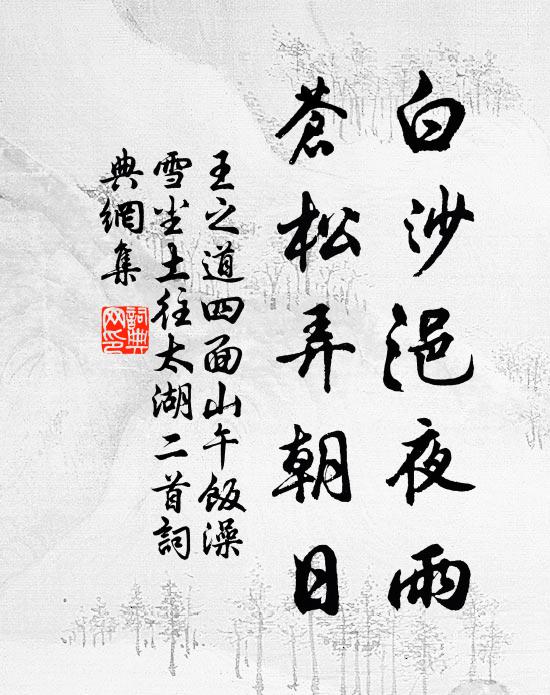 白沙浥夜雨
蒼松弄朝日
王之道四面山午飯澡
雪尘土往太湖二首詞
典網集
詞典网印